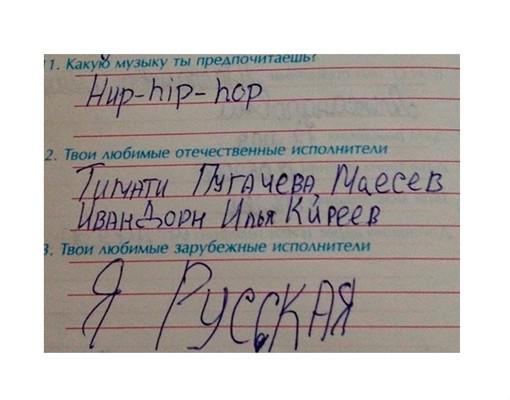 1. Какую музыку ты предпочитаешь?
Hup-hip-hop
2. Твои любимые отечественные исполнители
Тимати Пугачева Маесев
Иван Дорн Илья Киреев
3. Твои любимые зарубежные исполнители
Я Русская